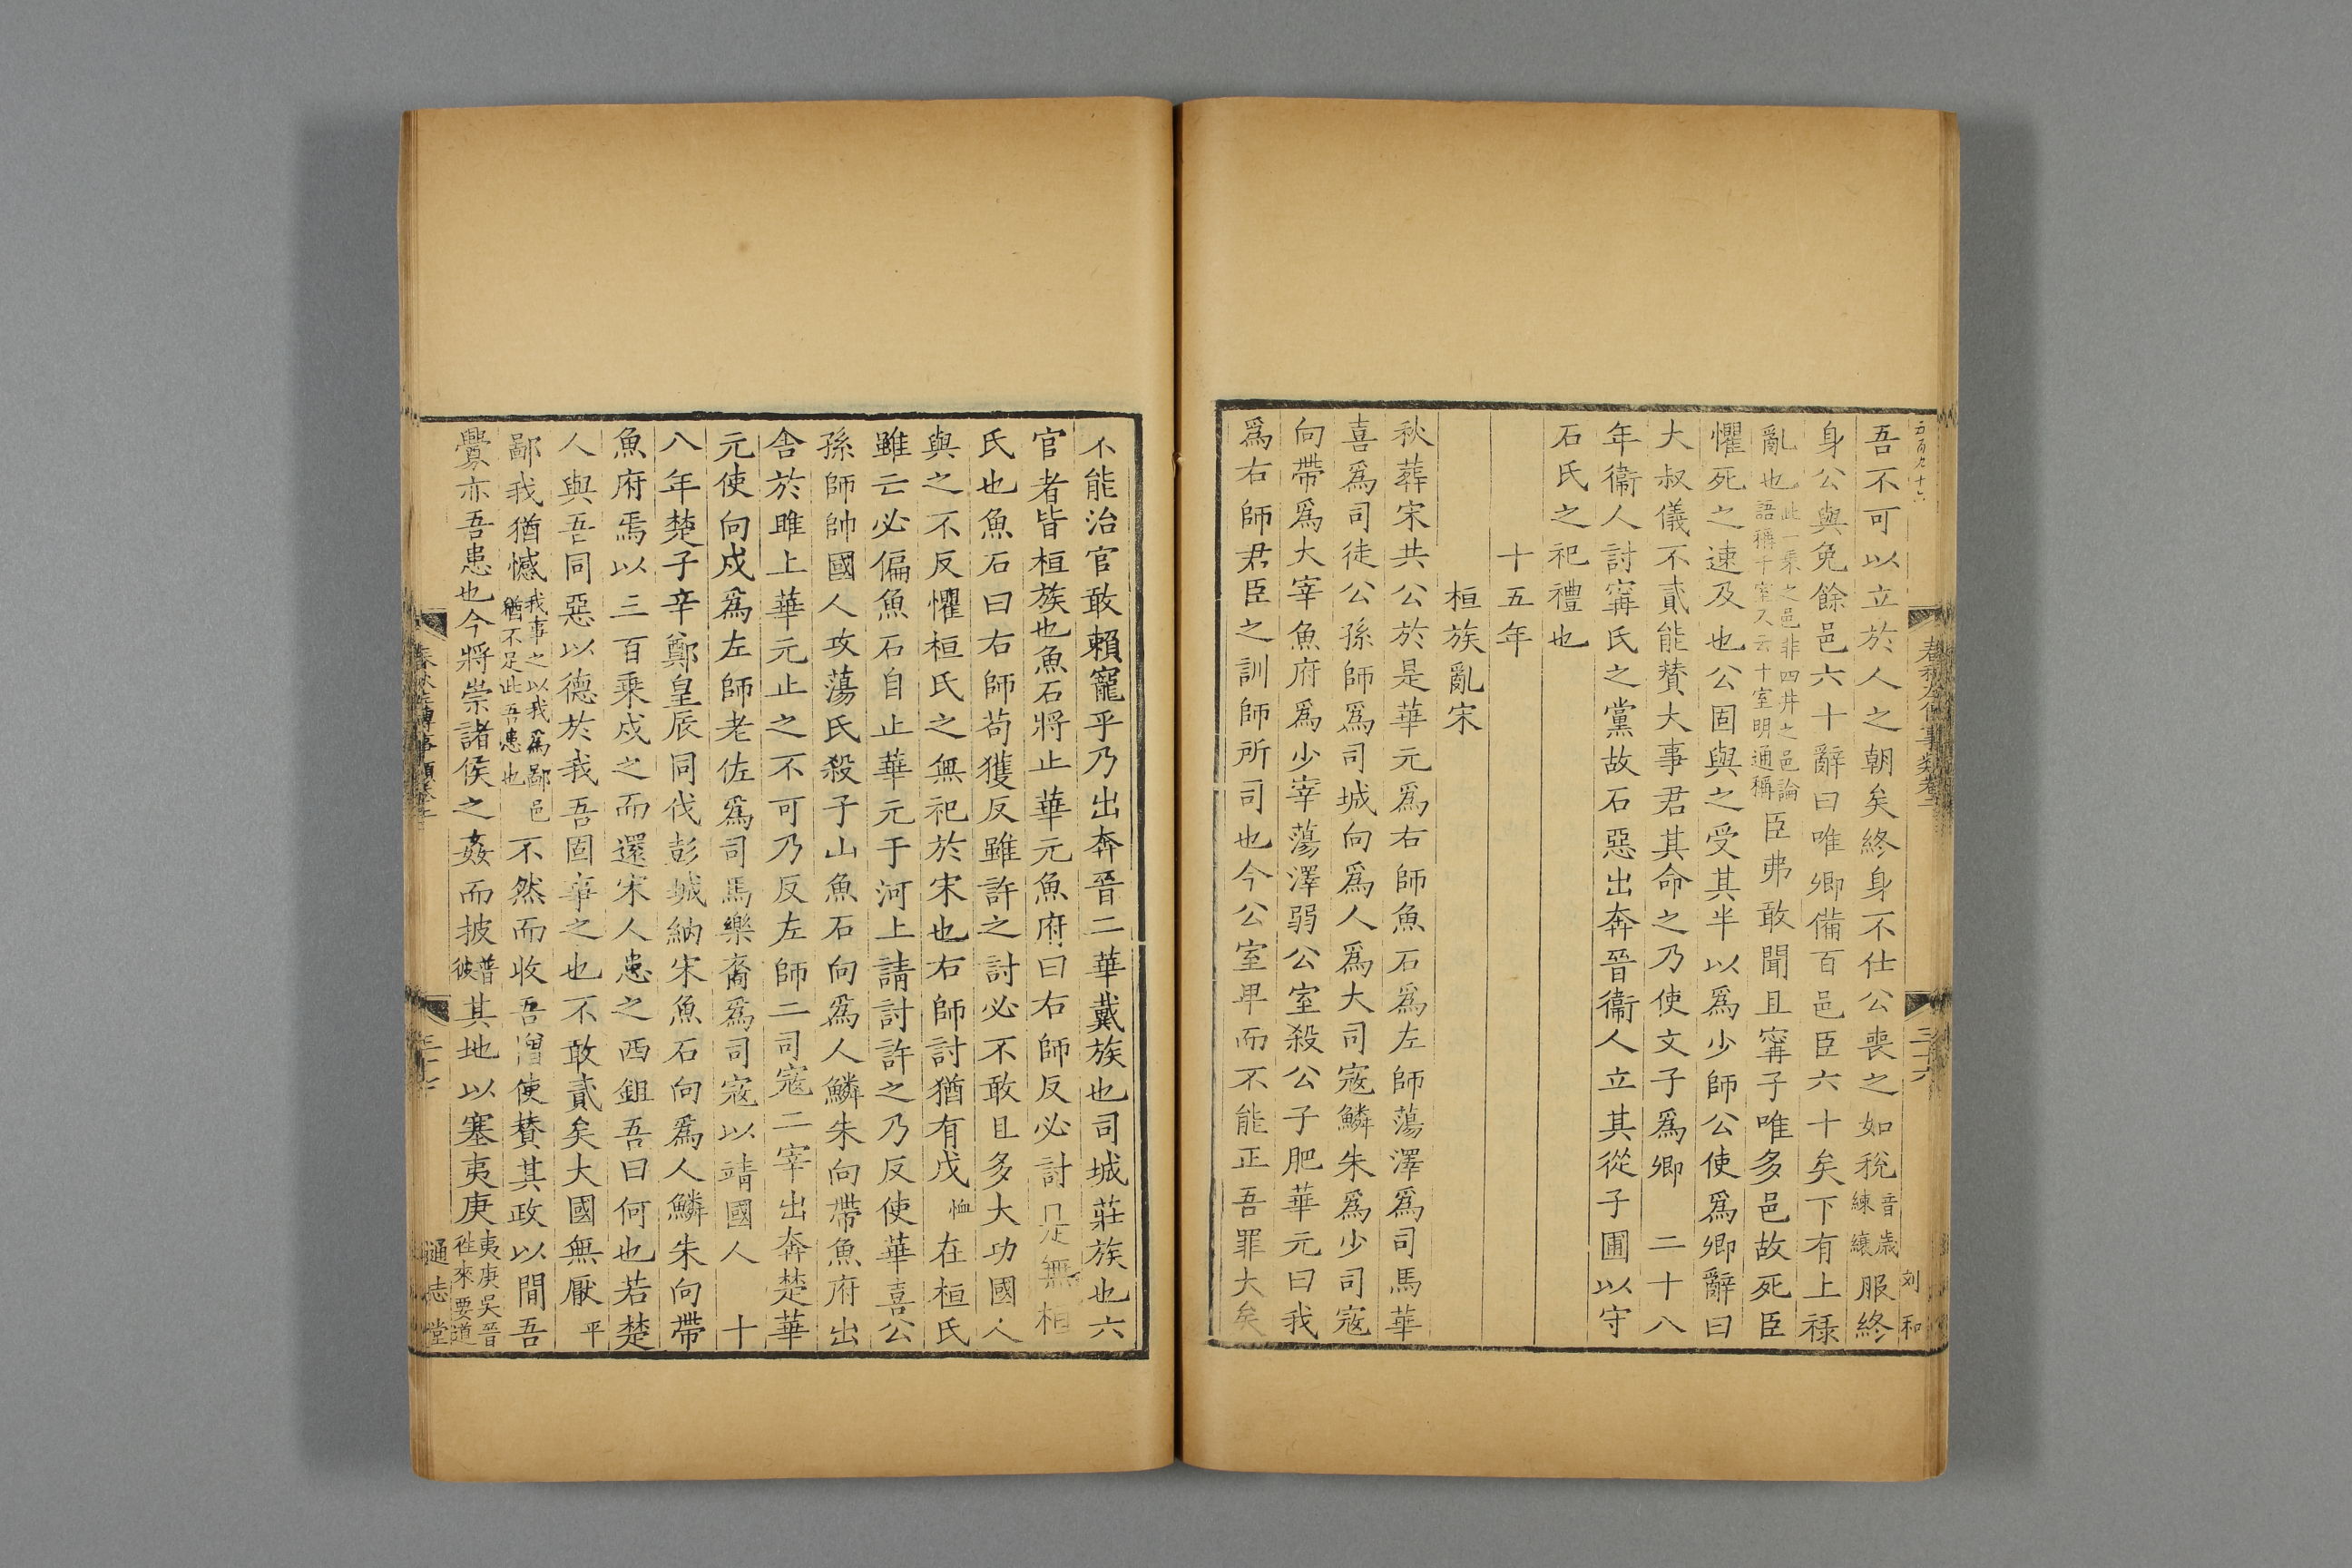 五百九十六
吾不可以立於人之朝矣終身不仕公喪之如稅音歲練縗服終
身公與免餘邑六十辭曰唯卿備百邑臣六十矣下有上祿
亂也此一乘之邑非四井之邑論語稱千室又云十室明通稱臣弗敢聞且甯子唯多邑故死臣
懼死之速及也公固與之受其半以爲少師公使爲卿辭曰
大叔儀不貳能賛大事君其命之乃使文子爲卿　二十八
年衞人討甯氏之黨故石惡出奔晉衞人立其從子圃以守
石氏之祀禮也
十五年
桓族亂宋
秋葬宋共公於是華元爲右師魚石爲左師蕩澤爲司馬華
喜爲司徒公孫師爲司城向爲人爲大司寇鱗朱爲少司寇
向帶爲大宰魚府爲少宰蕩澤弱公室殺公子肥華元曰我
爲右師君臣之訓師所司也今公室卑而不能正吾罪大矣
春秋左傳事類卷二
三十六
刘和
不能治官敢賴寵乎乃出奔晉二華戴族也司城莊族也六
官者皆桓族也魚石將止華元魚府曰右師反必討是無桓
氏也魚石曰右師苟獲反雖許之討必不敢且多大功國人
與之不反懼桓氏之無祀於宋也右師討猶有戌恤在桓氏
雖亡必偏魚石自止華元于河上請討許之乃反使華喜公
孫師帥國人攻蕩氏殺子山魚石向爲人鱗朱向帶魚府出
舍於睢上華元止之不可乃反左師二司寇二宰出奔楚華
元使向戍爲左師老佐爲司馬樂裔爲司寇以靖國人　十
八年楚子辛鄭皇辰同伐彭城納宋魚石向爲人鱗朱向帶
魚府焉以三百乘戍之而還宋人患之西鉏吾曰何也若楚
人與吾同惡以德於我吾固事之也不敢貳矣大國無厭平
鄙我猶憾我事之以我爲鄙邑猶不足此吾患也不然而收吾憎使賛其政以間吾
釁亦吾患也今將崇諸侯之姦而披普彼其地以塞夷庚夷庚吳晉徃來要道
三十七
通志堂